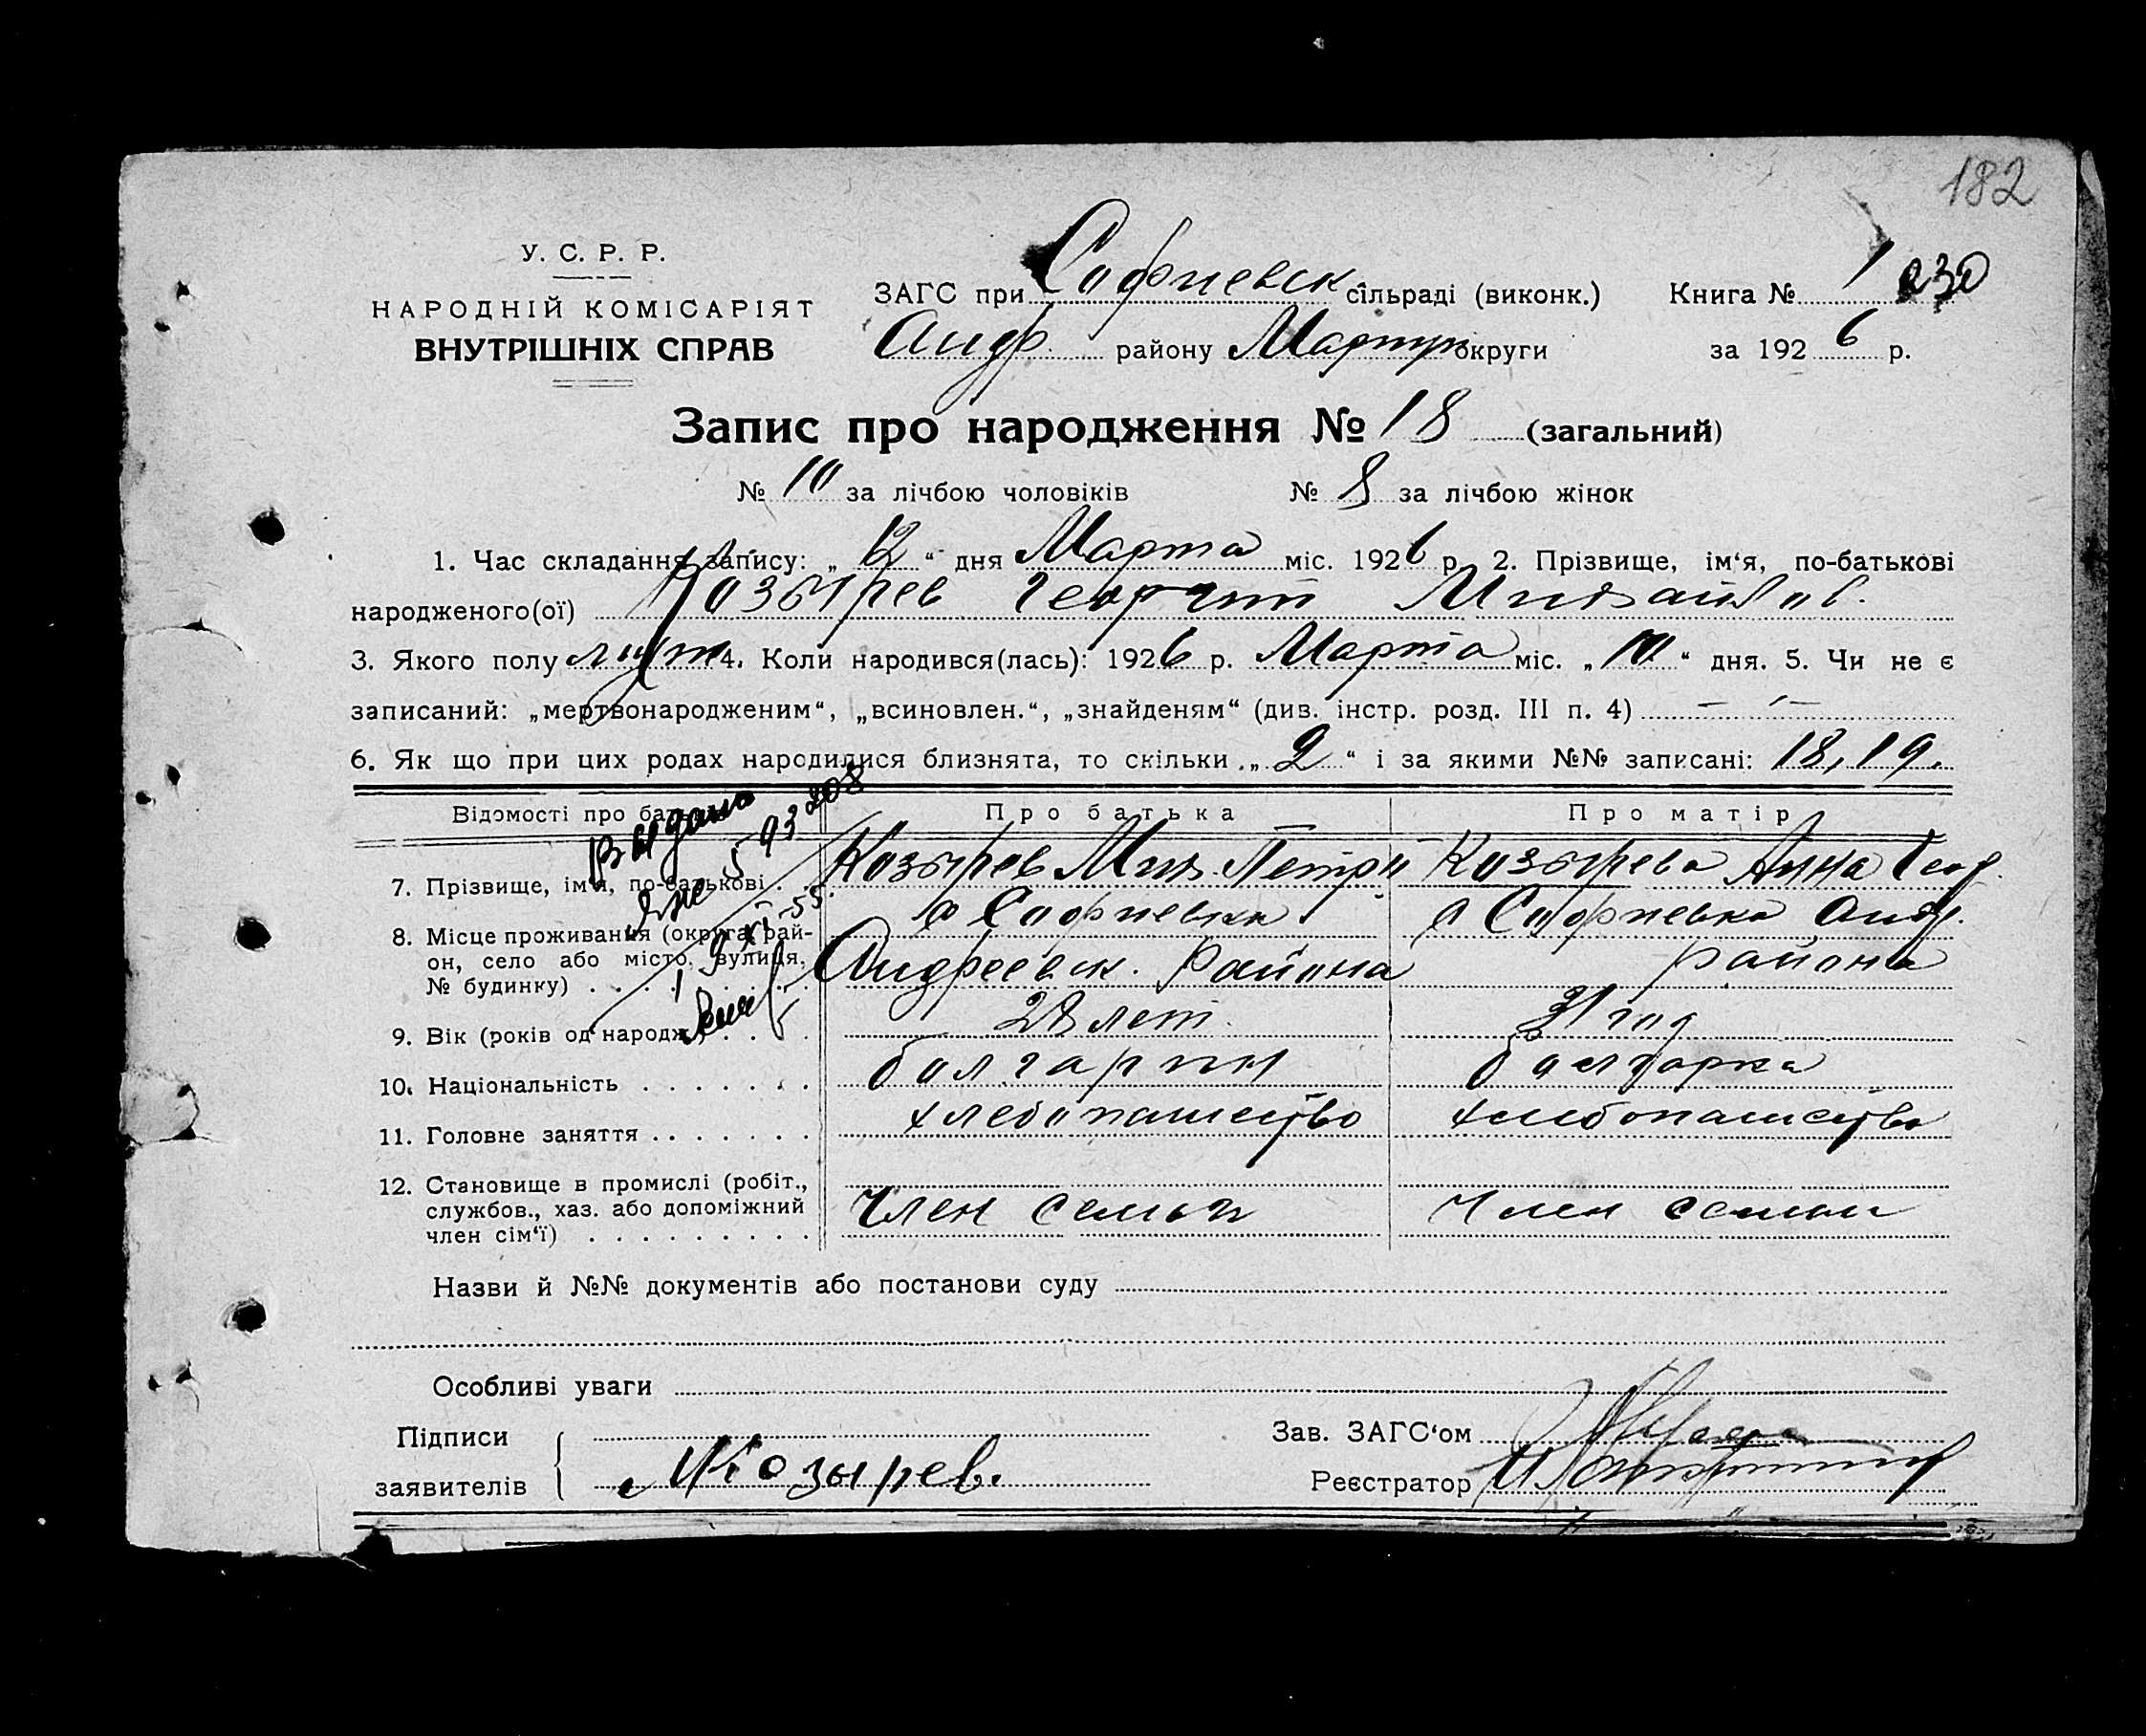 182
У. С. Р. Р.
НАРОДНІЙ КОМІСАРІЯТ
ВНУТРІШНІХ СПРАВ
ЗАГС при Софиевск сільраді (виконк.) Книга № 1 230
Андр. району Мариуп округи за 1926 р.
Запис про народження № 18 (загальний)
№ 10 за лічбою чоловіків № 8 за лічбою жінок
1. Час складання запису: „12“ дня Марта міс. 1926 р. 2. Прізвище, ім‘я, по-батькові
народженого(ої) Козырев Георгий Михайлов.
3. Якого полу муж 4. Коли народився(лась): 1926 р. Марта міс. „10“ дня. 5. Чи не є
записаний: „мертвонародженим“, „всиновлен.“, „знайденям“ (див. інстр. розд. III п. 4) — —
6. Як що при цих родах народилися близнята, то скільки „2“ і за якими №№ записані: 18, 19.
Відомості про батьків Про батька Про матір
Выдано
593208
9 XI-55
7. Прізвище, ім‘я, по-батькові . . Козырев Мих. Петро Козырева Анна Геор.
8. Місце проживання (округа, рай- с Софиевка с Софиевка Андр.
он, село або місто, вулиця, Андреевск. Района района
№ будинку) . . . .
9. Вік (років од народж.) . . . 28 лет. 31 год
10. Національність . . . . . . . болгарин болгарка
11. Головне заняття . . . . . . . хлебопашество хлебопашество
12. Становище в промислі (робіт.,
службов., хаз. або допоміжний Член семьи Член семьи
член сім‘ї) . . . . . . . . .
Назви й №№ документів або постанови суду
Особливі уваги
Підписи Зав. ЗАГС‘ом
заявителів МКозырев. Реєстратор